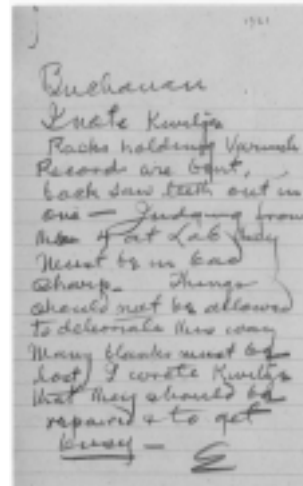 1921
Buchanan
I note Kwilijs
Racks holding Varnish
Records are bent,
back saw teeth out in
one — Judging from
4 at Lab they
must be in bad
shape. Things
should not be allowed
to deteriorate this way
Many blanks must be
lost, I wrote
that they should be
repaired & to get
busy —
E